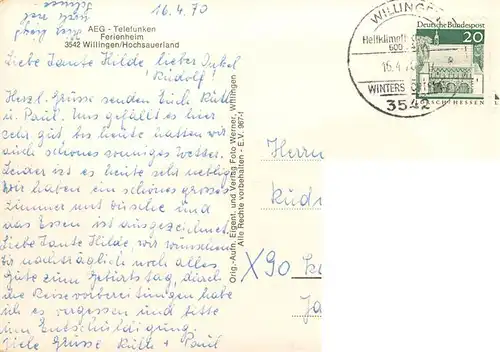 16.4.70
AEG - Telefunken
Ferienheim
3542 Willingen/Hochsauerland
Liebe Tante Hilde, lieber Onkel
Rudolf!
Herzl. Grüsse senden Euch Ruth
u. Paul. Uns gefällt es hier
sehr gut, bis heute hatten wir
auch schönes sonniges Wetter.
Leider ist es heute sehr neblig
Wir haben ein schönes grosses
Zimmer mit Dusche und
das Essen ist ausgezeichnet.
Liebe Tante Hilde, wir wünschen
Dir nachträglich noch alles
Gute zum Geburtstag, durch
die Reisevorbereitungen habe
ich es vergessen und bitte
um Entschuldigung.
Viele Grüsse Ruth + Paul
Orig.-Aufn. Eigent. und Verlag Foto Werner, Willingen
Alle Rechte vorbehalten - E.V. 967-I
WILLINGEN
Heilklimat
600
16.4.70
WINTERS
3542
Deutsche Bundespost
20
LORSCH/HESSEN
Herrn
Rud
X90